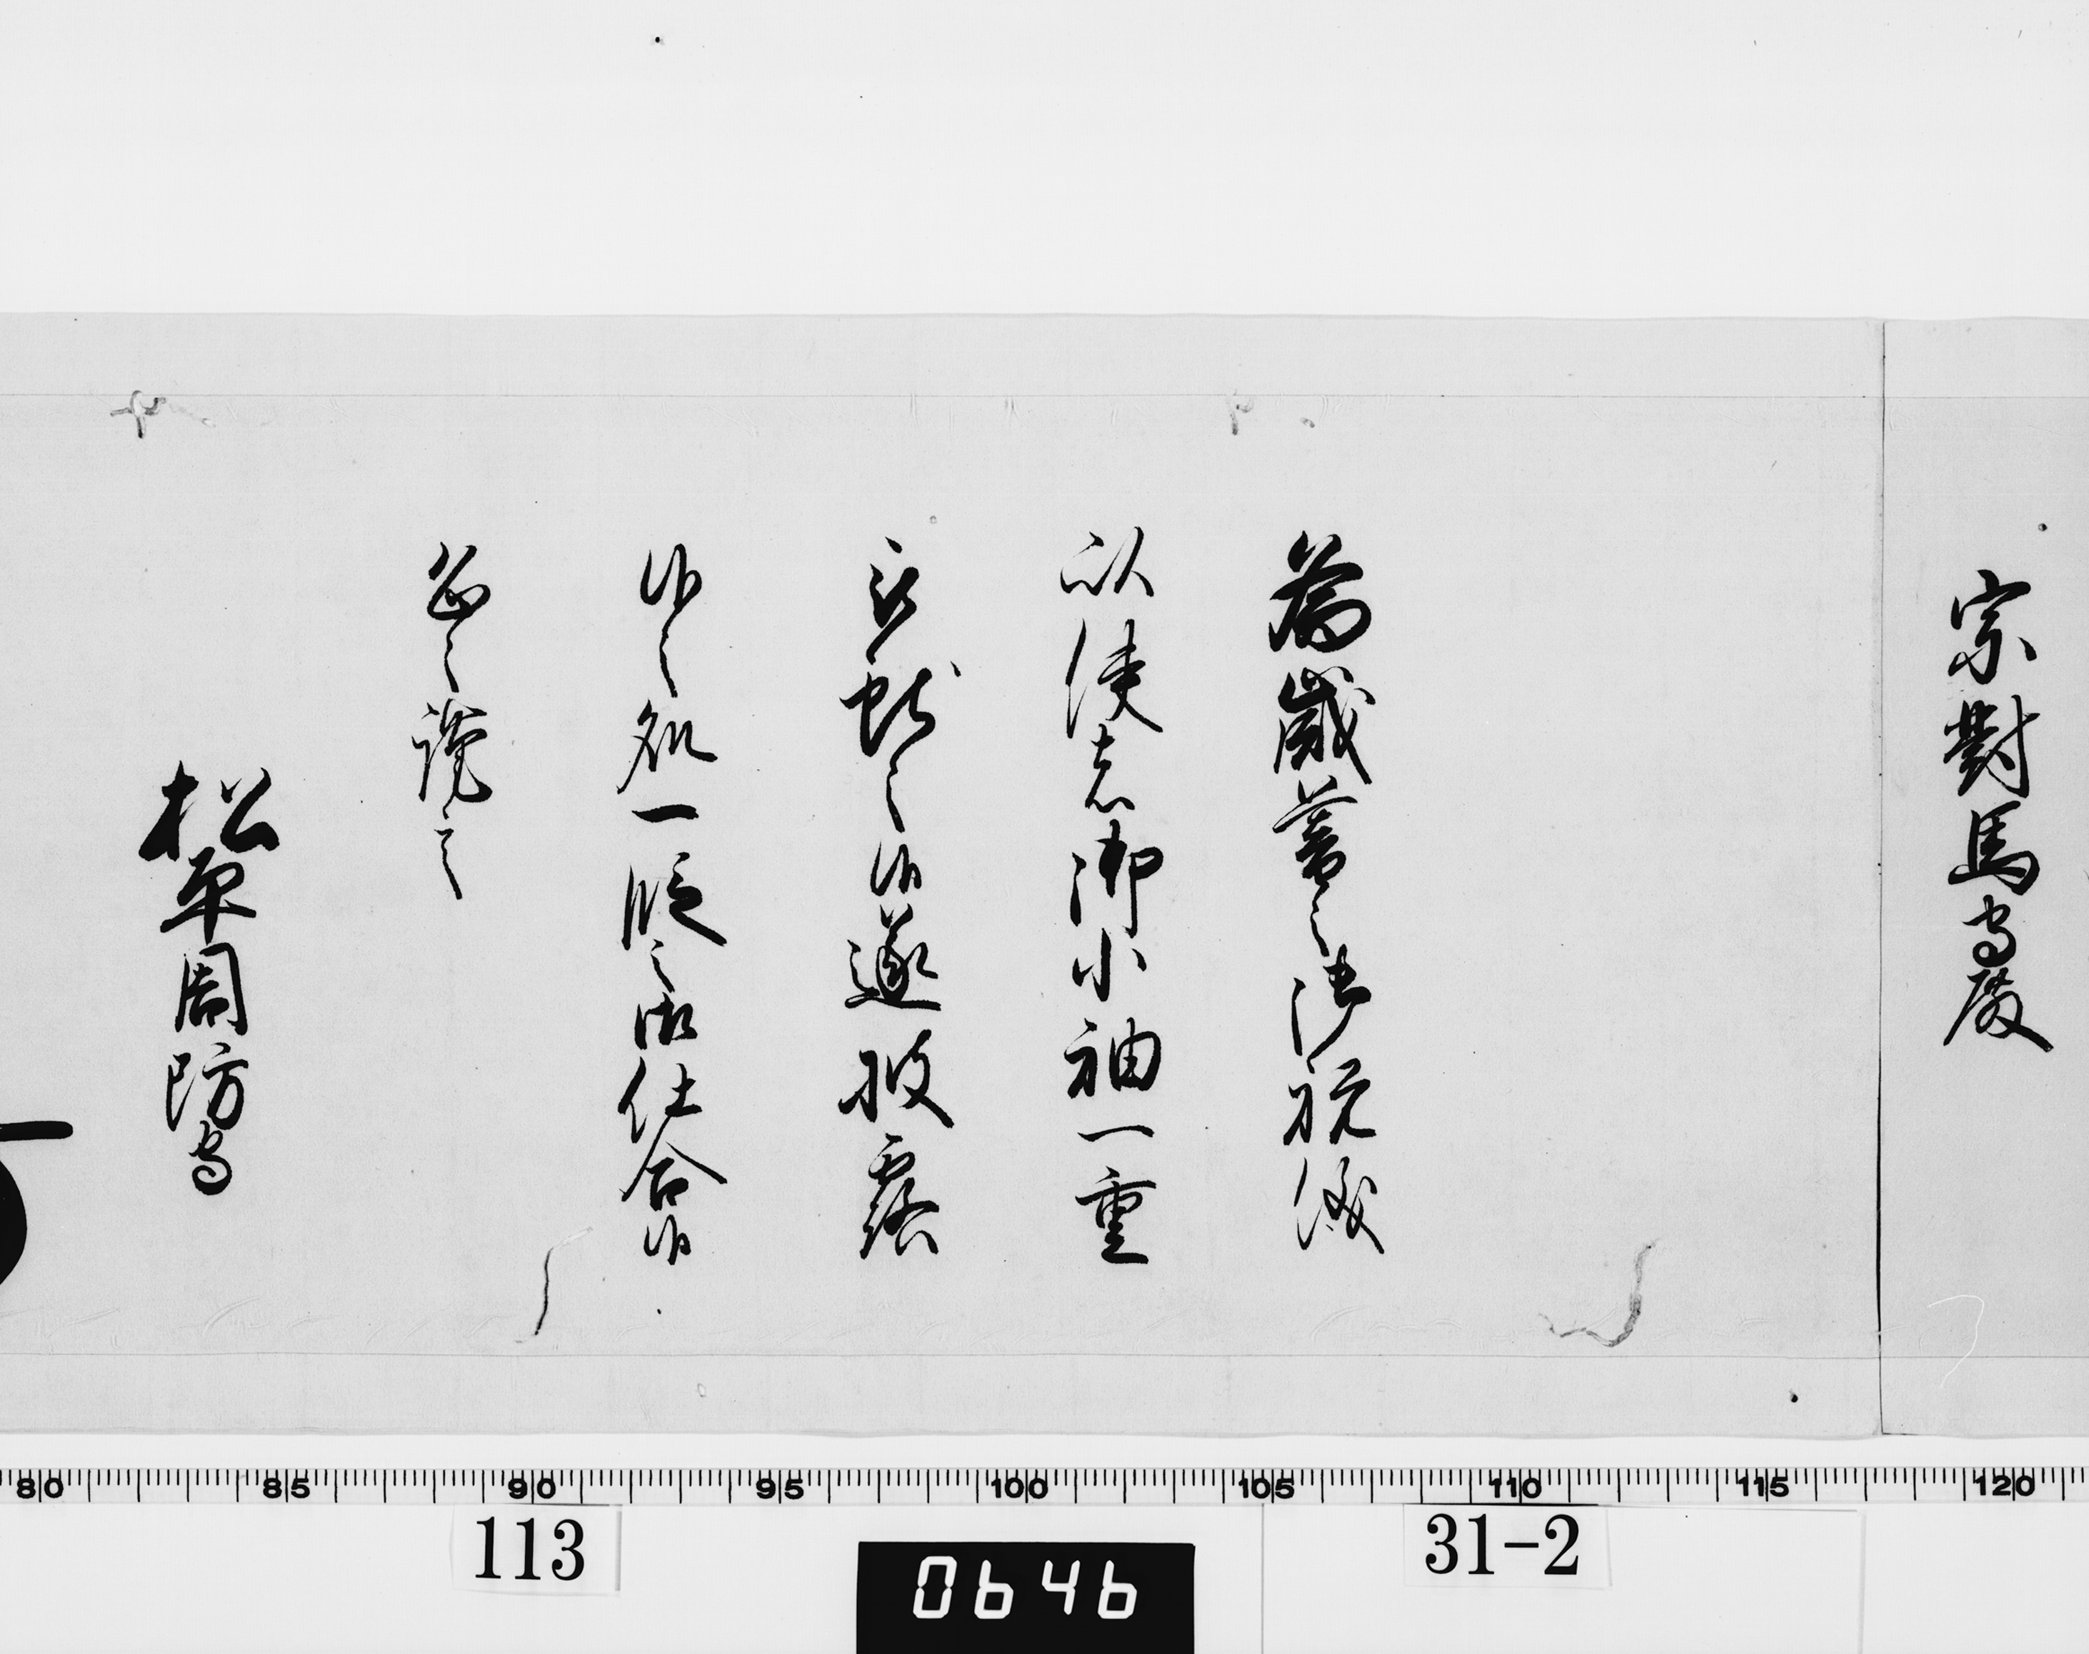 宗對馬守殿
為歳暮之御祝儀
以使者御小袖一重
被献之候遂披露
候之処一段之御仕合候
恐々謹言
松平周防守
80 85 90 95 100 105 110 115 120
113
0646
31-2